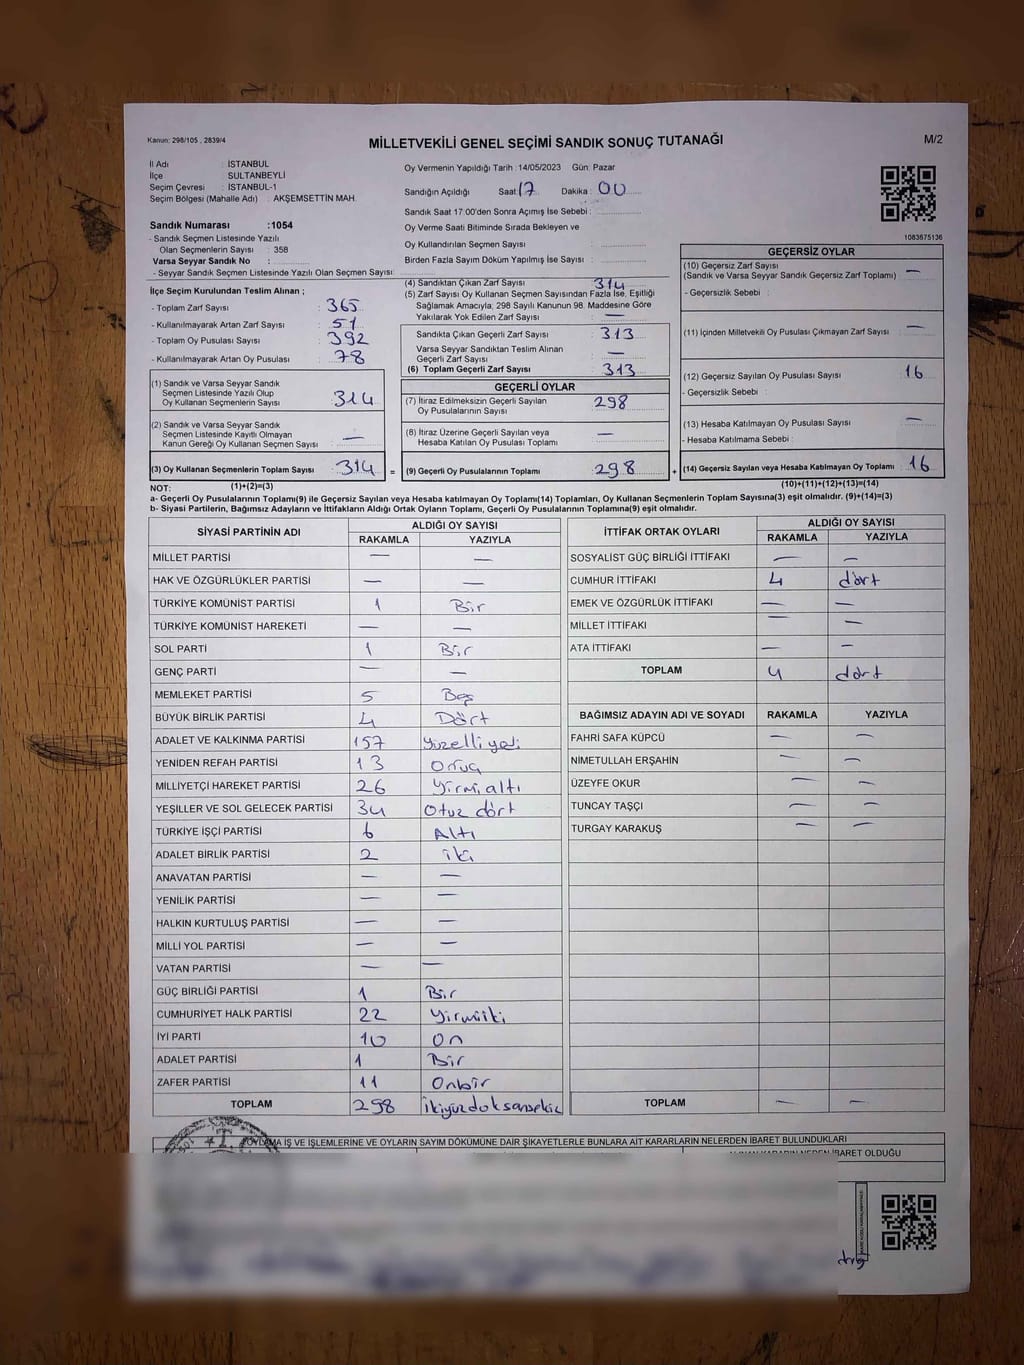 Kanun: 298/105 , 2839/4
MİLLETVEKİLİ GENEL SEÇİMİ SANDIK SONUÇ TUTANAĞI
M/2
İl Adı : İSTANBUL
İlçe : SULTANBEYLİ
Seçim Çevresi : İSTANBUL-1
Seçim Bölgesi (Mahalle Adı) : AKŞEMSETTİN MAH.
Sandık Numarası :1054
- Sandık Seçmen Listesinde Yazılı
Olan Seçmenlerin Sayısı : 358
Varsa Seyyar Sandık No :
- Seyyar Sandık Seçmen Listesinde Yazılı Olan Seçmen Sayısı:
Oy Vermenin Yapıldığı Tarih : 14/05/2023 Gün: Pazar
Sandığın Açıldığı Saat: 17 Dakika : 00
Sandık Saat 17:00'den Sonra Açımış İse Sebebi :
Oy Verme Saati Bitiminde Sırada Bekleyen ve
Oy Kullandırılan Seçmen Sayısı :
Birden Fazla Sayım Döküm Yapılmış İse Sayısı :
1083675136
İlçe Seçim Kurulundan Teslim Alınan ;
- Toplam Zarf Sayısı : 365
- Kullanılmayarak Artan Zarf Sayısı : 51
- Toplam Oy Pusulası Sayısı : 392
- Kullanılmayarak Artan Oy Pusulası : 78
(1) Sandık ve Varsa Seyyar Sandık
Seçmen Listesinde Yazılı Olup
Oy Kullanan Seçmenlerin Sayısı : 314
(2) Sandık ve Varsa Seyyar Sandık
Seçmen Listesinde Kayıtlı Olmayan
Kanun Gereği Oy Kullanan Seçmen Sayısı : —
(3) Oy Kullanan Seçmenlerin Toplam Sayısı : 314
(4) Sandıktan Çıkan Zarf Sayısı : 314
(5) Zarf Sayısı Oy Kullanan Seçmen Sayısından Fazla İse, Eşitliği
Sağlamak Amacıyla; 298 Sayılı Kanunun 98. Maddesine Göre
Yakılarak Yok Edilen Zarf Sayısı : —
Sandıkta Çıkan Geçerli Zarf Sayısı : 313
Varsa Seyyar Sandıktan Teslim Alınan
Geçerli Zarf Sayısı : —
(6) Toplam Geçerli Zarf Sayısı : 313
GEÇERLİ OYLAR
(7) İtiraz Edilmeksizin Geçerli Sayılan
Oy Pusulalarının Sayısı : 298
(8) İtiraz Üzerine Geçerli Sayılan veya
Hesaba Katılan Oy Pusulası Toplamı : —
= (9) Geçerli Oy Pusulalarının Toplamı : 298
GEÇERSİZ OYLAR
(10) Geçersiz Zarf Sayısı
(Sandık ve Varsa Seyyar Sandık Geçersiz Zarf Toplamı) : —
- Geçersizlik Sebebi :
(11) İçinden Milletvekili Oy Pusulası Çıkmayan Zarf Sayısı : —
(12) Geçersiz Sayılan Oy Pusulası Sayısı : 16
- Geçersizlik Sebebi :
(13) Hesaba Katılmayan Oy Pusulası Sayısı : —
- Hesaba Katılmama Sebebi :
+ (14) Geçersiz Sayılan veya Hesaba Katılmayan Oy Toplamı : 16
NOT: (1)+(2)=(3) (10)+(11)+(12)+(13)=(14)
a- Geçerli Oy Pusulalarının Toplamı(9) ile Geçersiz Sayılan veya Hesaba katılmayan Oy Toplamı(14) Toplamları, Oy Kullanan Seçmenlerin Toplam Sayısına(3) eşit olmalıdır. (9)+(14)=(3)
b- Siyasi Partilerin, Bağımsız Adayların ve İttifakların Aldığı Ortak Oyların Toplamı, Geçerli Oy Pusulalarının Toplamına(9) eşit olmalıdır.
SİYASİ PARTİNİN ADI ALDIĞI OY SAYISI
RAKAMLA YAZIYLA
MİLLET PARTİSİ — —
HAK VE ÖZGÜRLÜKLER PARTİSİ — —
TÜRKİYE KOMÜNİST PARTİSİ 1 Bir
TÜRKİYE KOMÜNİST HAREKETİ — —
SOL PARTİ 1 Bir
GENÇ PARTİ — —
MEMLEKET PARTİSİ 5 Beş
BÜYÜK BİRLİK PARTİSİ 4 Dört
ADALET VE KALKINMA PARTİSİ 157 Yüzelliyedi
YENİDEN REFAH PARTİSİ 13 Onüç
MİLLİYETÇİ HAREKET PARTİSİ 26 Yirmialtı
YEŞİLLER VE SOL GELECEK PARTİSİ 34 Otuz dört
TÜRKİYE İŞÇİ PARTİSİ 6 Altı
ADALET BİRLİK PARTİSİ 2 iki
ANAVATAN PARTİSİ — —
YENİLİK PARTİSİ — —
HALKIN KURTULUŞ PARTİSİ — —
MİLLİ YOL PARTİSİ — —
VATAN PARTİSİ — —
GÜÇ BİRLİĞİ PARTİSİ 1 Bir
CUMHURİYET HALK PARTİSİ 22 Yirmiiki
İYİ PARTİ 10 On
ADALET PARTİSİ 1 Bir
ZAFER PARTİSİ 11 Onbir
TOPLAM 298 ikiyüzdoksansekiz
İTTİFAK ORTAK OYLARI ALDIĞI OY SAYISI
RAKAMLA YAZIYLA
SOSYALİST GÜÇ BİRLİĞİ İTTİFAKI — —
CUMHUR İTTİFAKI 4 dört
EMEK VE ÖZGÜRLÜK İTTİFAKI — —
MİLLET İTTİFAKI — —
ATA İTTİFAKI — —
TOPLAM 4 dört
BAĞIMSIZ ADAYIN ADI VE SOYADI RAKAMLA YAZIYLA
FAHRİ SAFA KÜPCÜ — —
NİMETULLAH ERŞAHİN — —
ÜZEYFE OKUR — —
TUNCAY TAŞÇI — —
TURGAY KARAKUŞ — —
TOPLAM — —
OYLAMA İŞ VE İŞLEMLERİNE VE OYLARIN SAYIM DÖKÜMÜNE DAİR ŞİKAYETLERLE BUNLARA AİT KARARLARIN NELERDEN İBARET BULUNDUKLARI
İBARET OLDUĞU